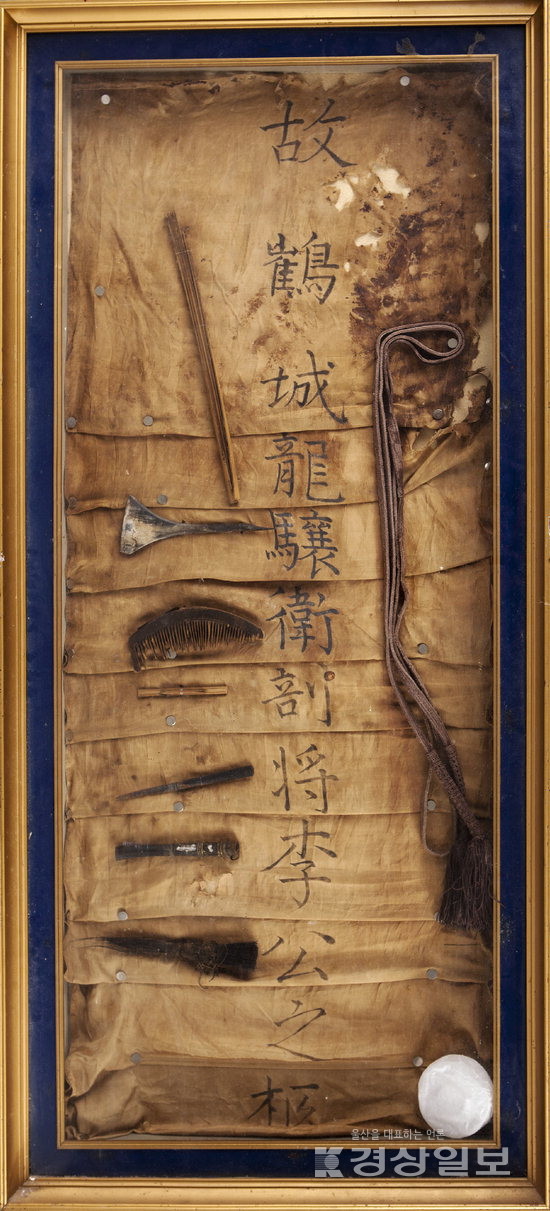 故鶴城龍驤衛部将李公之柩
울산을 대표하는 언론
경상일보